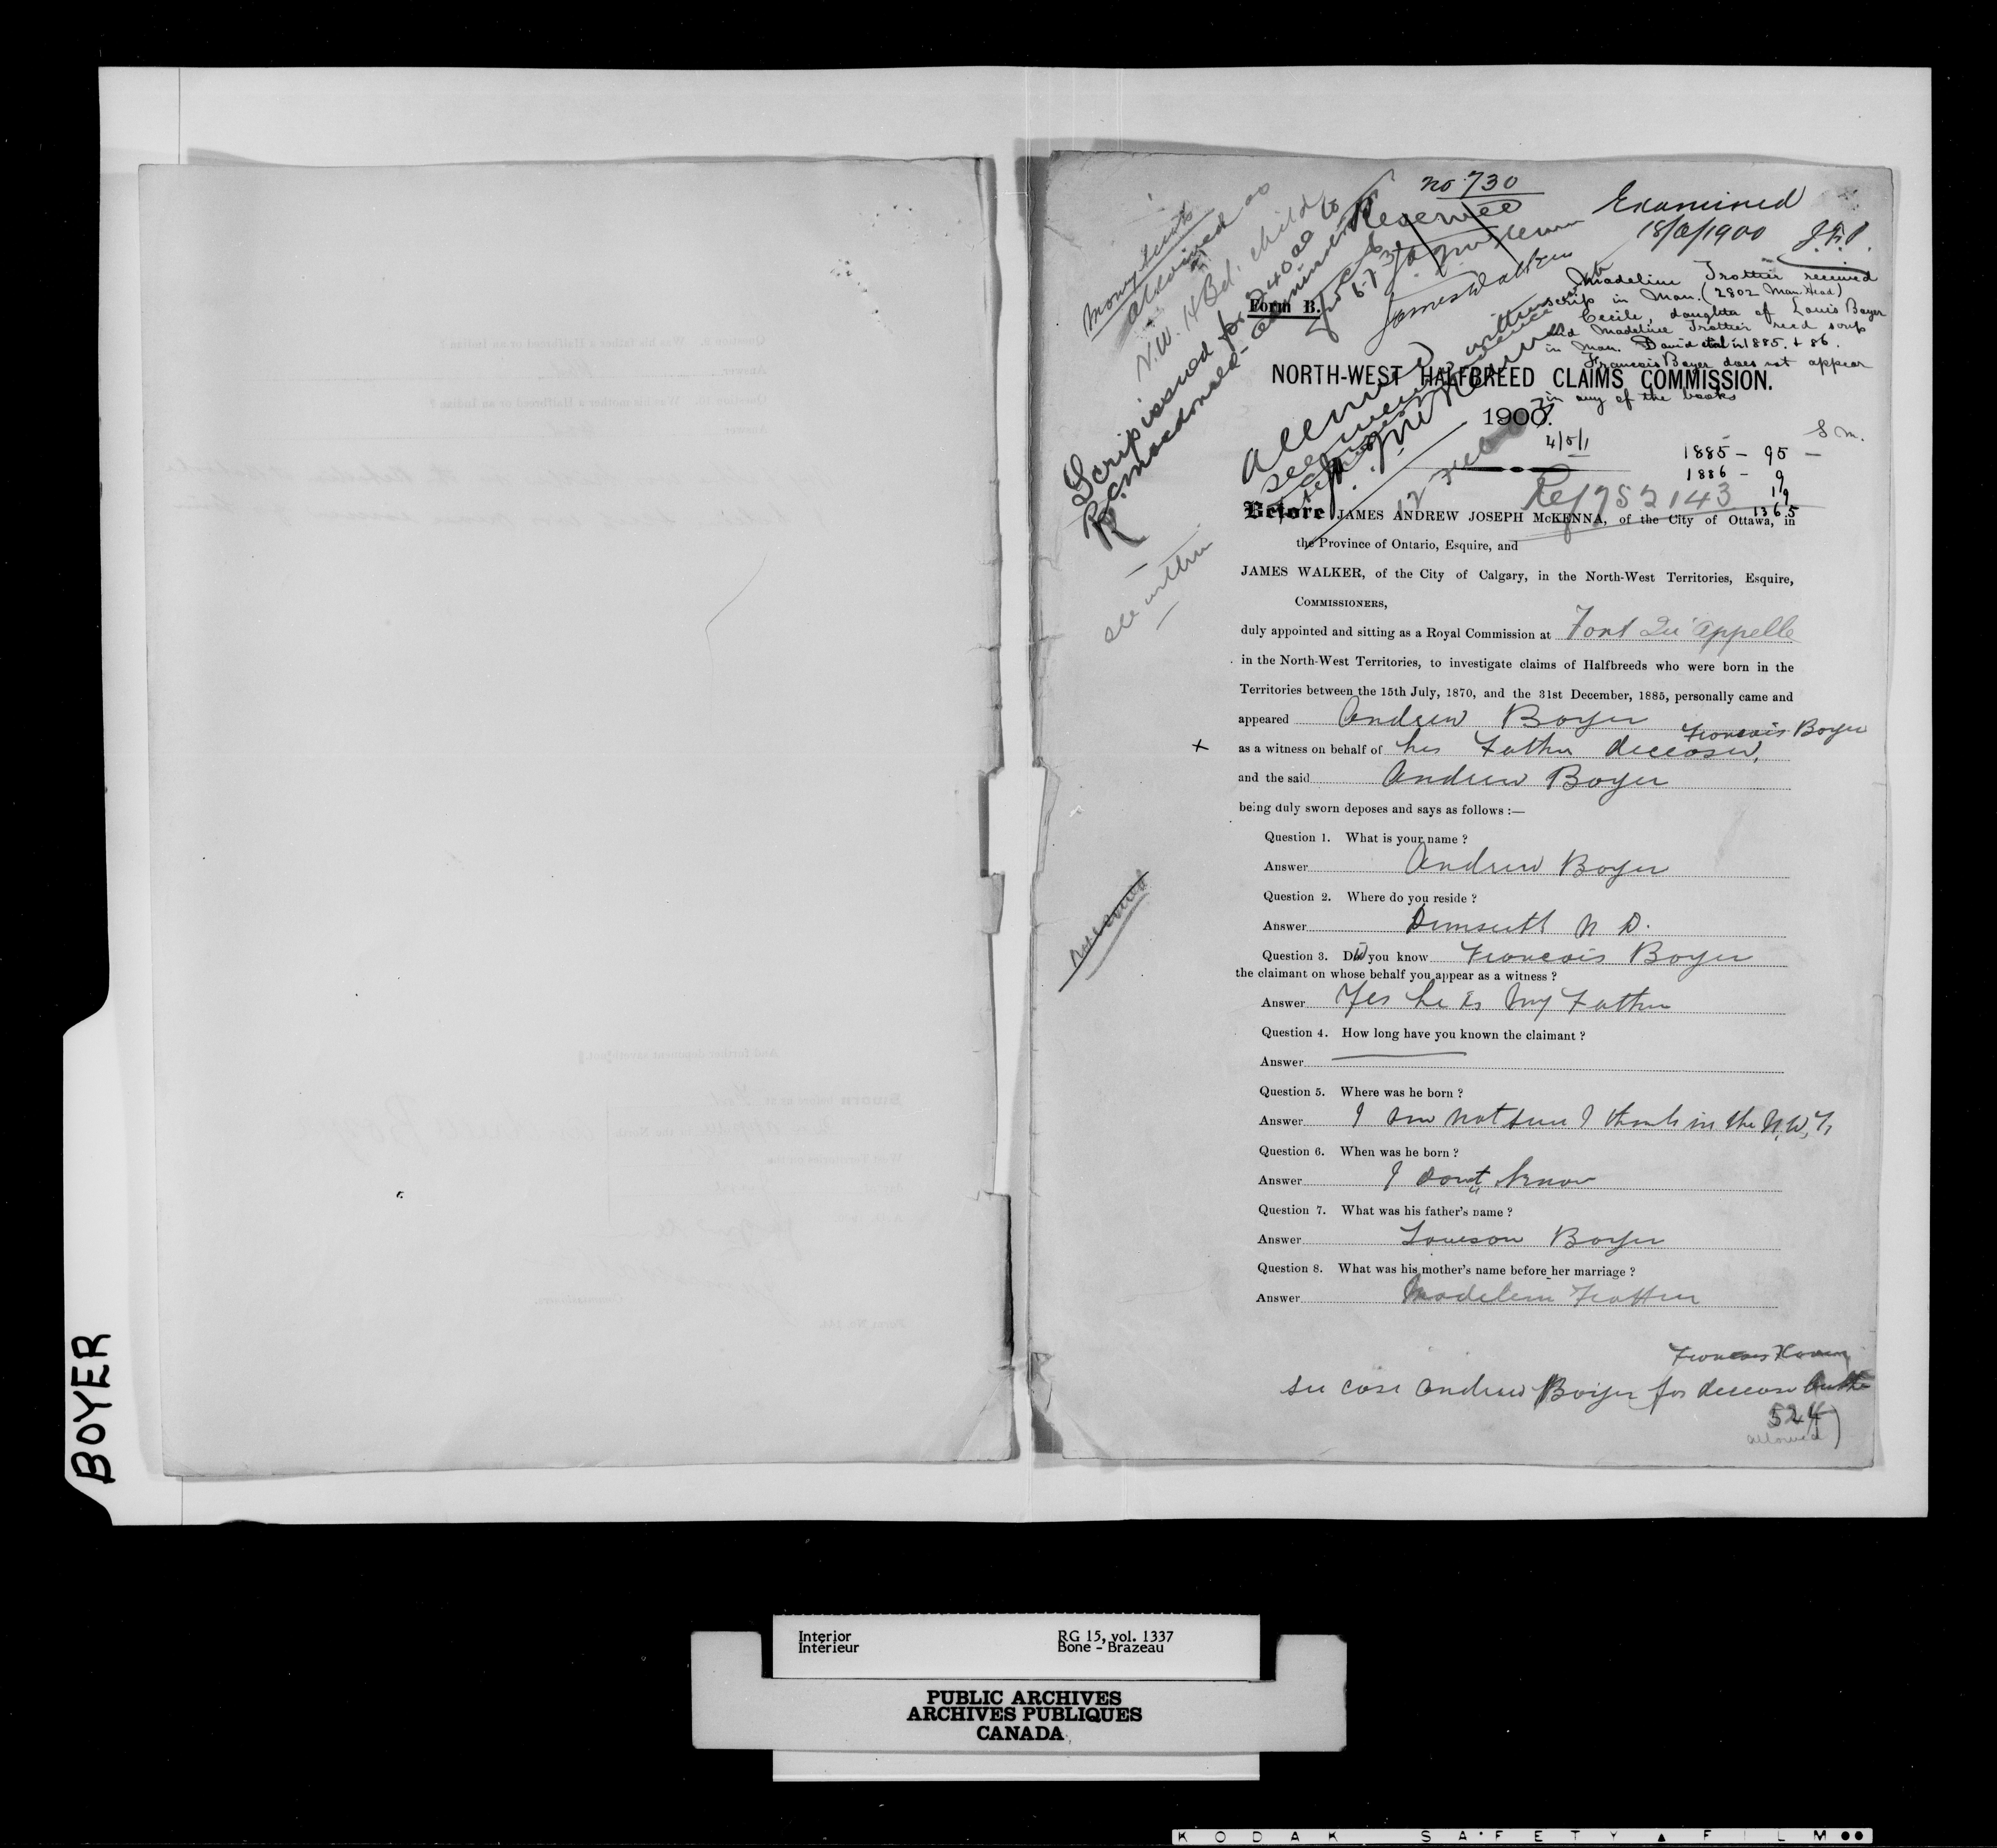 no 730
Reserved
Examined
18/6/1900 J.F.P.
James Walker
Money Scrip
allowed as
N.W. HBd. child
Scrip issued for $240 00 to
R. Macdonald - administrator
see within
Madeline Trottier received
scrip in Man. (2802 Man. Head)
Cecile, daughter of Louis Boyer
and Madeline Trottier recd scrip
in Man. David in 1885. & 86.
Francois Boyer does not appear
in any of the books
Form B.
NORTH-WEST HALFBREED CLAIMS COMMISSION.
1900.
Allowed
see written evidence
4/5/1
S M.
1885 - 95 -
1886 - 9
19
1365
Ref 752143
Before JAMES ANDREW JOSEPH McKENNA, of the City of Ottawa, in
the Province of Ontario, Esquire, and
JAMES WALKER, of the City of Calgary, in the North-West Territories, Esquire,
COMMISSIONERS,
duly appointed and sitting as a Royal Commission at Fort Qu'appelle
in the North-West Territories, to investigate claims of Halfbreeds who were born in the
Territories between the 15th July, 1870, and the 31st December, 1885, personally came and
appeared Andrew Boyer
x as a witness on behalf of his Father deceased, Francois Boyer
and the said Andrew Boyer
being duly sworn deposes and says as follows :—
Question 1. What is your name ?
Answer Andrew Boyer
Question 2. Where do you reside ?
Answer Dunseith N D.
Question 3. Did you know Francois Boyer
the claimant on whose behalf you appear as a witness ?
Answer Yes he is my Father
Question 4. How long have you known the claimant ?
Answer
Question 5. Where was he born ?
Answer I am not sure I think in the N.W.T.
Question 6. When was he born ?
Answer I dont know
Question 7. What was his father's name ?
Answer Louison Boyer
Question 8. What was his mother's name before her marriage ?
Answer Madeleine Trottier
see case Andrew Boyer for decease
524
allowed)
BOYER
Interior RG 15, vol. 1337
Intérieur Bone - Brazeau
PUBLIC ARCHIVES
ARCHIVES PUBLIQUES
CANADA
KODAK SAFETY FILM